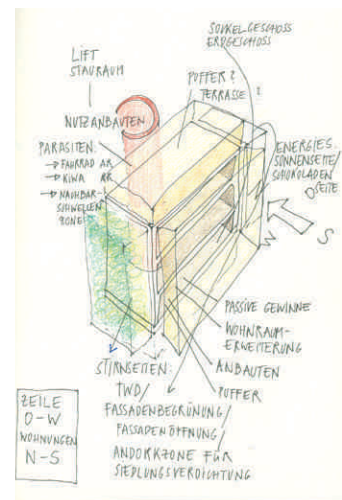 SOCKELGESCHOSS
ERDGESCHOSS
LIFT
STAURAUM
PUFFER?
TERRASSE?
NUTZANBAUTEN
PARASITEN:
→ FAHRRAD AR
→ KIWA AR
→ NACHBAR-
SCHWELLEN
ZONE
ENERGIES.
SONNENSEITE/
SCHOKOLADEN
SEITE
O
W
S
PASSIVE GEWINNE
WOHNRAUM-
ERWEITERUNG
ANBAUTEN
PUFFER
STIRNSEITEN:
TWD/
FASSADENBEGRÜNUNG/
FASSADENÖFFNUNG/
ANDOCKZONE FÜR
SIEDLUNGSVERDICHTUNG
ZEILE
O-W
WOHNUNGEN
N-S